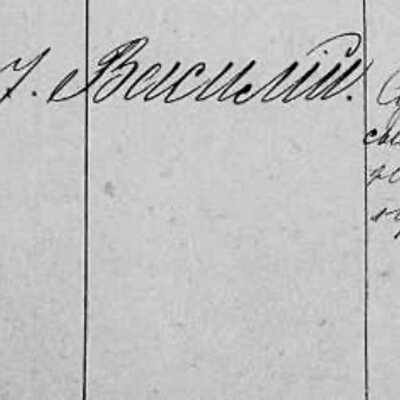 7. Василій.